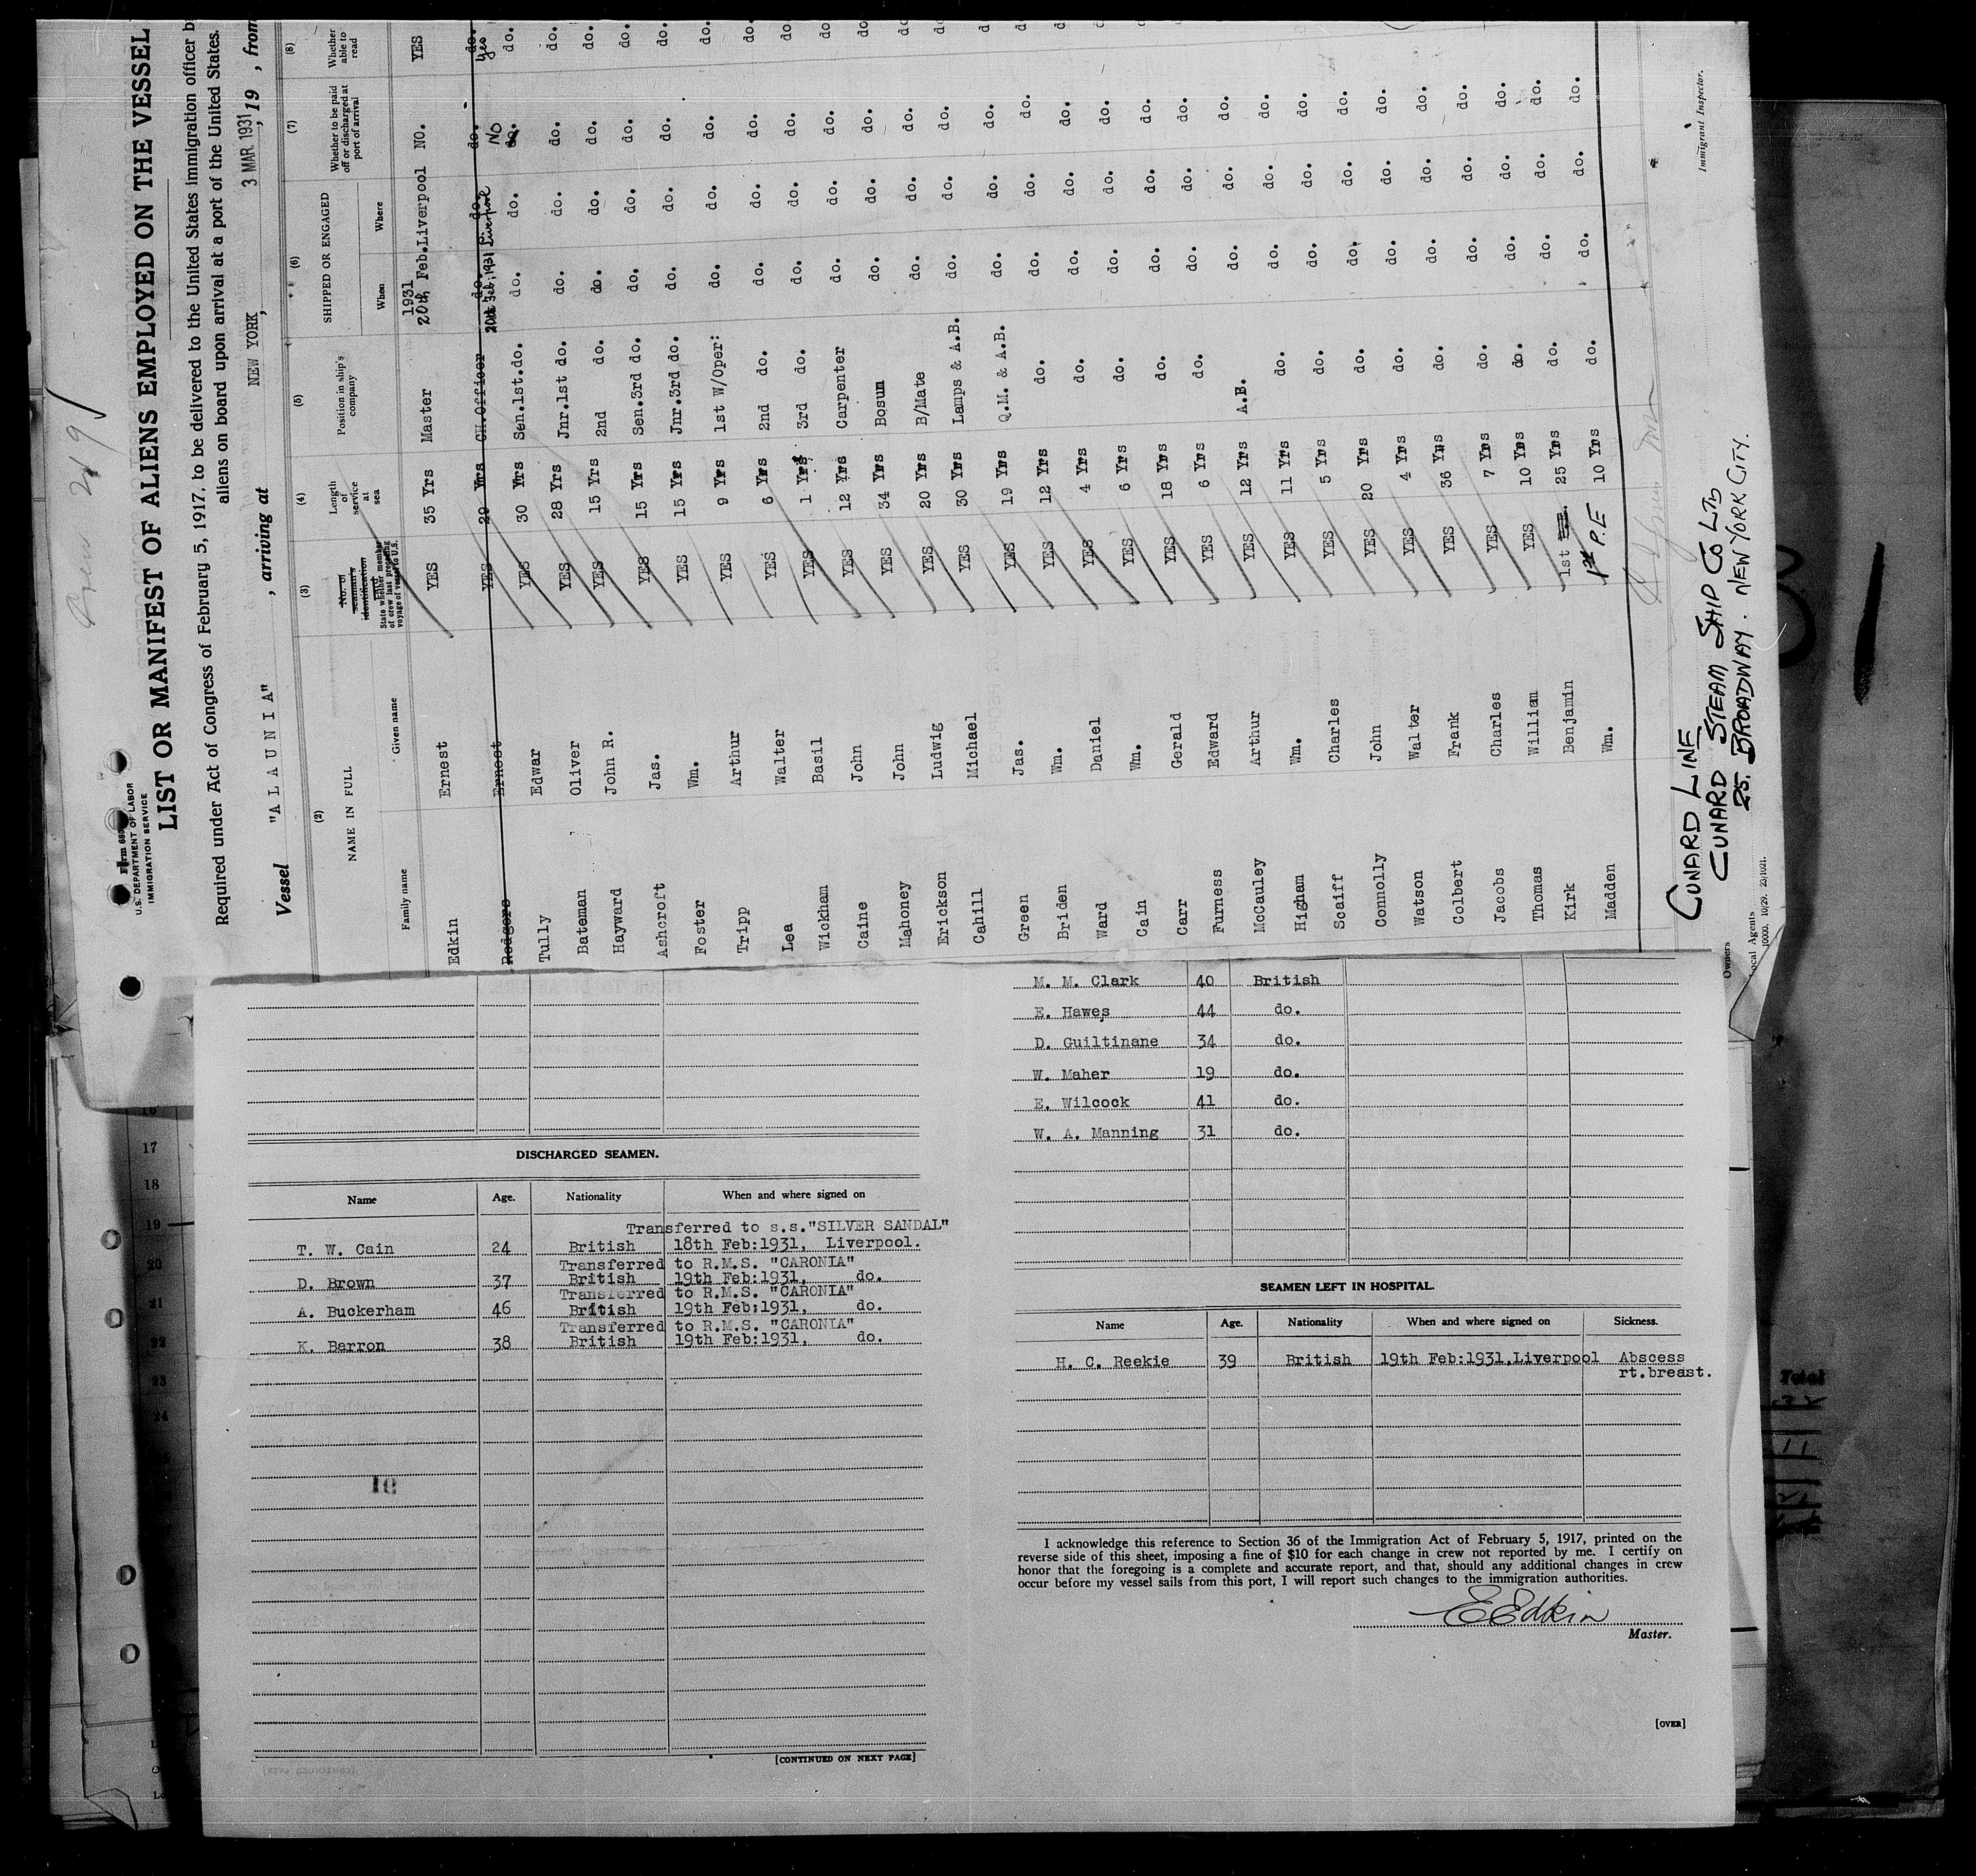 Form 680
U.S. DEPARTMENT OF LABOR
IMMIGRATION SERVICE
LIST OR MANIFEST OF ALIENS EMPLOYED ON THE VESSEL
Required under Act of Congress of February 5, 1917, to be delivered to the United States immigration officer b
aliens on board upon arrival at a port of the United States.
Vessel "ALAUNIA" , arriving at NEW YORK, 3 MAR 1931, 19 , from
(2) (3) (4) (5) (6) (7) (8)
NAME IN FULL
Family name Given name
No. of seaman's identification card
State whether member of crew last preceding voyage of vessel to U.S.
Length of service at sea
Position in ship's company
SHIPPED OR ENGAGED
When Where
Whether to be paid off or discharged at port of arrival
Whether able to read
Edkin Ernest YES 35 Yrs Master 1931 20th Feb. Liverpool NO. YES
Rodgers Ernest YES 29 Yrs CH.Officer do. do. do. do.
20th Feb. 1931 Liverpool No yes
Tully Edwar YES 30 Yrs Sen.1st.do. do. do. do. do.
Bateman Oliver YES 28 Yrs Jnr.1st do. do. do. do. do.
Hayward John R. YES 15 Yrs 2nd do. do. do. do. do.
Ashcroft Jas. YES 15 Yrs Sen.3rd do. do. do. do. do.
Foster Wm. YES 15 Yrs Jnr.3rd do. do. do. do. do.
Tripp Arthur YES 9 Yrs 1st W/Oper: do. do. do. do.
Lea Walter YES 6 Yrs 2nd do. do. do. do. do.
Wickham Basil YES 1 Yrs 3rd do. do. do. do. do.
Caine John YES 12 Yrs Carpenter do. do. do. do.
Mahoney John YES 34 Yrs Bosum do. do. do. do.
Erickson Ludwig YES 20 Yrs B/Mate do. do. do. do.
Cahill Michael YES 30 Yrs Lamps & A.B. do. do. do. do.
Green Jas. YES 19 Yrs Q.M. & A.B. do. do. do. do.
Briden Wm. YES 12 Yrs do. do. do. do. do.
Ward Daniel YES 4 Yrs do. do. do. do.
Cain Wm. YES 6 Yrs do. do. do. do.
Carr Gerald YES 18 Yrs do. do. do. do.
Furness Edward YES 6 Yrs do. do. do. do.
McCauley Arthur YES 12 Yrs A.B. do. do. do.
Higham Wm. YES 11 Yrs do. do. do. do.
Scaiff Charles YES 5 Yrs do. do. do. do.
Connolly John YES 20 Yrs do. do. do. do.
Watson Walter YES 4 Yrs do. do. do. do.
Colbert Frank YES 36 Yrs do. do. do. do.
Jacobs Charles YES 7 Yrs do. do. do. do.
Thomas William YES 10 Yrs do. do. do. do.
Kirk Benjamin 1st 25 Yrs do. do. do. do.
Madden Wm. 1st P.E 10 Yrs do. do. do. do.
CUNARD LINE
CUNARD STEAM SHIP CO LTD
25. BROADWAY. NEW YORK CITY.
Immigrant Inspector.
Owners
Local Agents
10000. 10/29. 23/1021.
17
18
19
20
21
22
23
24
Total
DISCHARGED SEAMEN.
Name Age. Nationality When and where signed on
Transferred to s.s."SILVER SANDAL"
T. W. Cain 24 British 18th Feb:1931, Liverpool.
Transferred to R.M.S. "CARONIA"
D. Brown 37 British 19th Feb:1931, do.
Transferred to R.M.S. "CARONIA"
A. Buckerham 46 British 19th Feb:1931, do.
Transferred to R.M.S. "CARONIA"
K. Barron 38 British 19th Feb:1931, do.
10
[CONTINUED ON NEXT PAGE]
M. M. Clark 40 British
E. Hawes 44 do.
D. Guiltinane 34 do.
W. Maher 19 do.
E. Wilcock 41 do.
W. A. Manning 31 do.
SEAMEN LEFT IN HOSPITAL.
Name Age. Nationality When and where signed on Sickness.
H. C. Reekie 39 British 19th Feb:1931,Liverpool Abscess
rt.breast.
I acknowledge this reference to Section 36 of the Immigration Act of February 5, 1917, printed on the
reverse side of this sheet, imposing a fine of $10 for each change in crew not reported by me. I certify on
honor that the foregoing is a complete and accurate report, and that, should any additional changes in crew
occur before my vessel sails from this port, I will report such changes to the immigration authorities.
E Edkin
Master.
[OVER]